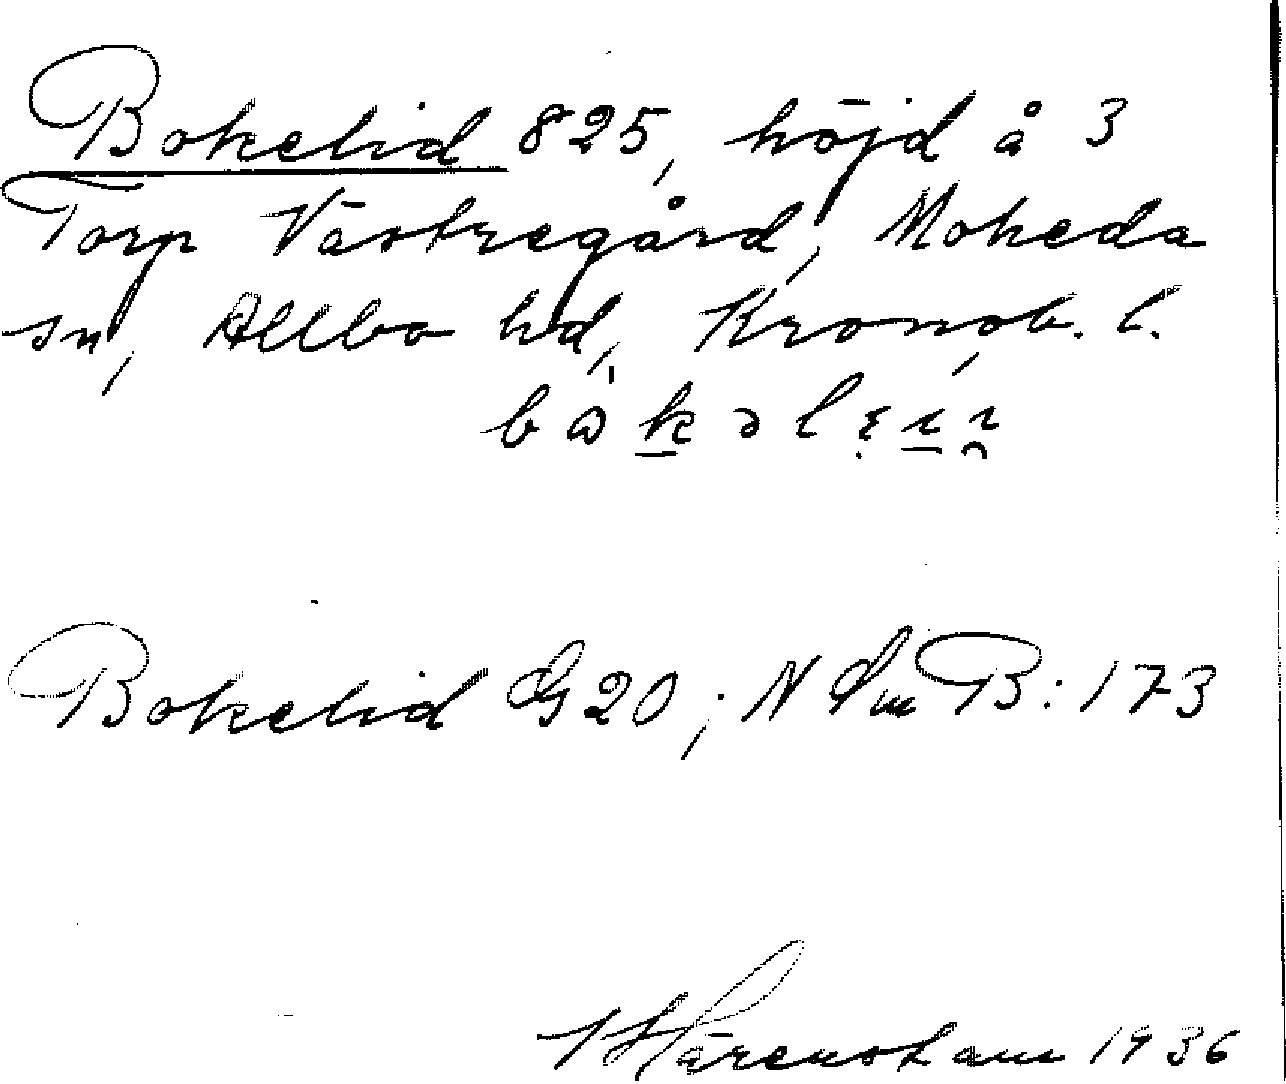 Bokelid 825, höjd å 3
Torp Västregård, Moheda
sn, Allbo hd, Kronob. l.
Bokelid G20; N Sm B: 173
1936